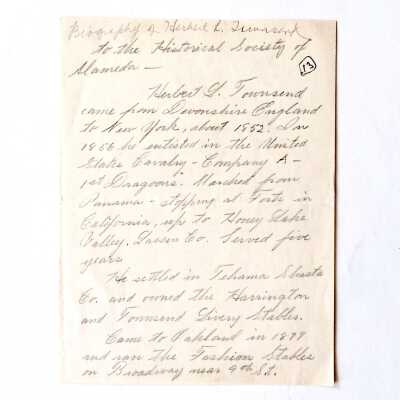 Biography of Herbert L. Townsend
to the Historical Society of
Alameda —
13
Herbert L. Townsend
came from Devonshire England
to New York, about 1852. In
1856 he enlisted in the United
State Cavalry - Company A -
1st Dragoons. Marched from
Panama - stopping at Forts in
California, up to Honey Lake
Valley, Lassen Co. Served five
years
He settled in Tehama Shasta
Co. and owned the Harrington
and Townsend Livery Stables.
Came to Oakland in 1877
and ran the Fashion Stables
on Broadway near 9th St.